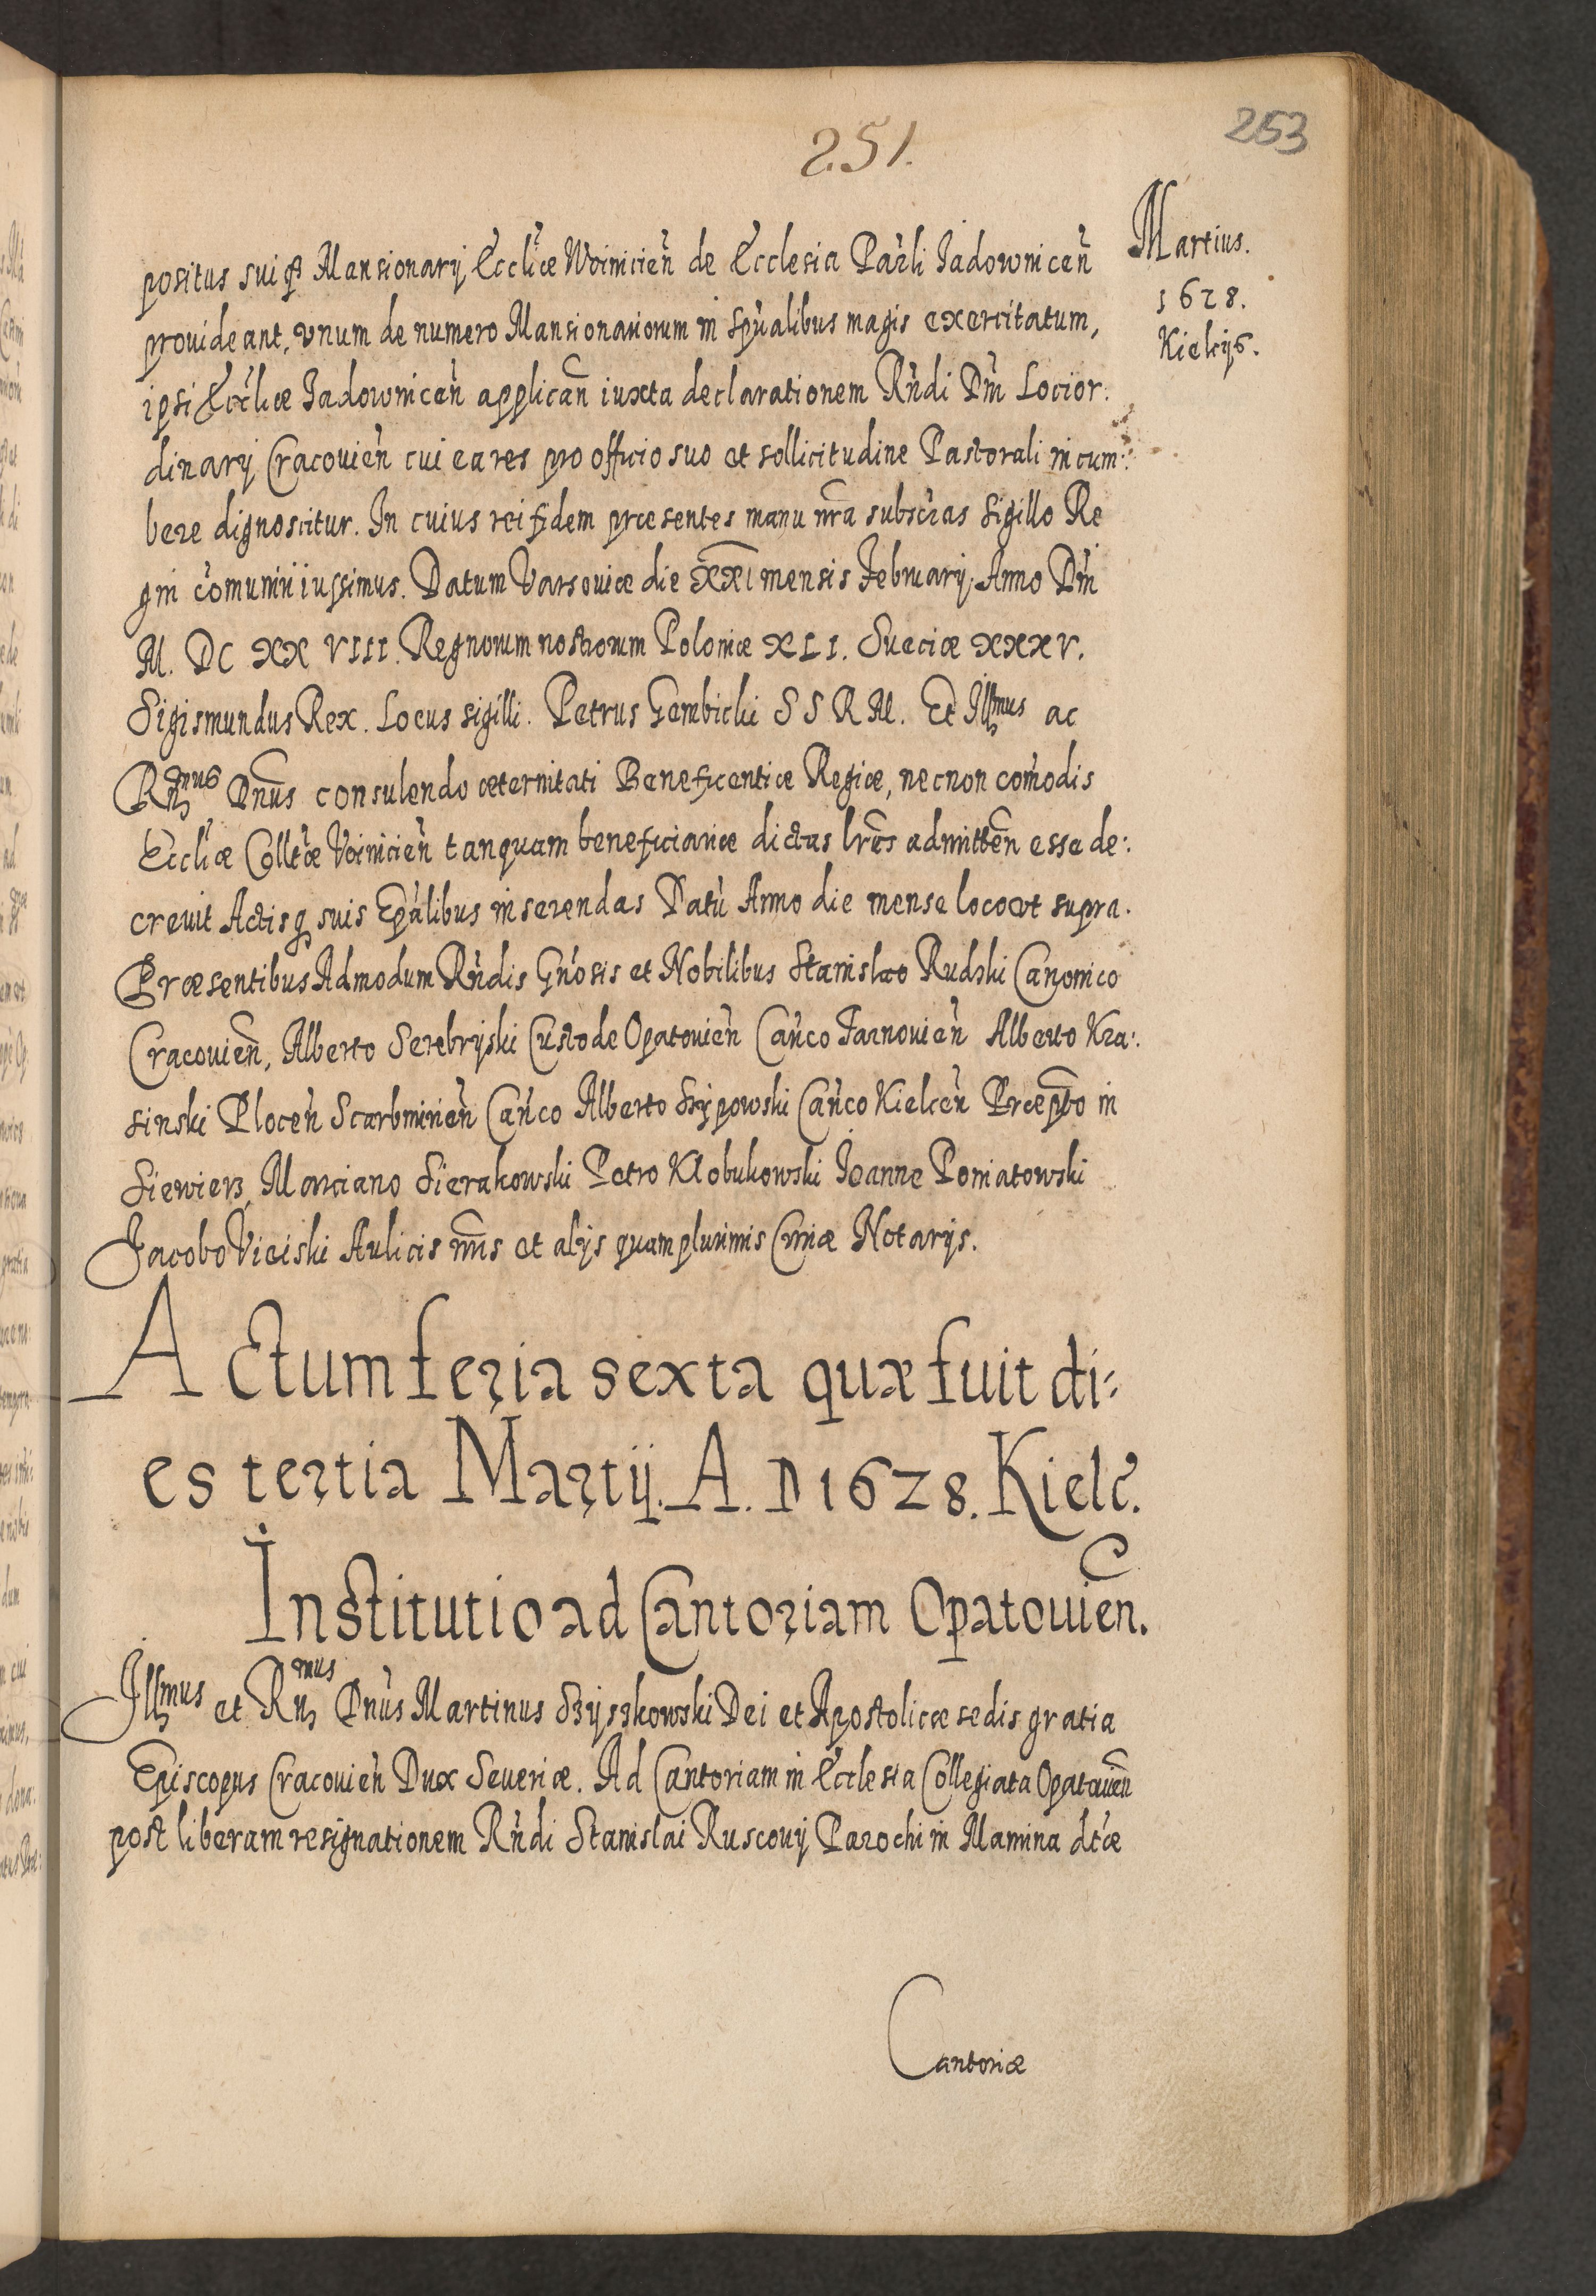 251.
253
Martius.
1628.
Kielcijs.
positus suiq3 Mansionarij Eccl'iæ Woinicien̄ de Ecclesia Par'li Jadownicen̄
prouideant, vnum de numero Mansionariorum in Sp'ualibus magis exercitatum,
ipsi Eccl'iæ Jadownicen̄ applican̄ iuxta declarationem Rn̄di Dn̄i Locior:
dinarij Cracouien̄ cui ea res pro officio suo et sollicitudine Pastorali incum:
bere dignoscitur. In cuius rei fidem præsentes manu nr̄a subscr'as Sigillo Re
gni com̄uniri iussimus. Datum Varsouiæ die XXI mensis Februarij. Anno Dn̄i
M. DC XX VIII. Regnorum nostrorum Poloniæ XLI. Sueciæ XXXV.
Sigismundus Rex. Locus sigilli. Petrus Gembicki S S R M. Et Illmus ac
Rn̄dmus Dn̄us consulendo æternitati Beneficentiæ Regiæ, necnon com̄odis
Eccl'iæ Coll'tæ Voinicien̄ tanquam beneficiariæ dictas lr̄as admitten̄ esse de:
creuit Actisq3 suis Ep'alibus inserendas Datu' Anno die mense loco vt supra.
Præsentibus Admodum Rn̄dis Gn'osis et Nobilibus Stanislao Rudzki Canonico
Cracouien̄, Alberto Serebryski Custode Opatouien̄ Can'co Tarnouien̄ Alberto Kra:
sinski Plocen̄ Scarbmirien̄ Can'co Alberto Lipowski Can'co Kielcen̄ Præpt̄o in
Siewierz, Marciano Sierakowski Petro Klobukowski Joanne Poniatowski
Jacobo Vieiski Aulicis nr̄is et alijs quamplurimis Curiæ Notarijs.
Actum feria sexta quæ fuit di:
es tertia Martij. A. D 1628. Kielc'.
Institutio ad Cantoriam Opatouien̄.
Illmus et Rn̄dmus Dn̄us Martinus Szyszkowski Dei et Apostolicæ sedis gratia
Episcopus Cracouien̄ Dux Seueriæ. Ad Cantoriam in Ecclesia Collegiata Opatouien̄
post liberam resignationem Rn̄di Stanislai Ruscouij Parochi in Mamina dt'æ
Cantoriæ